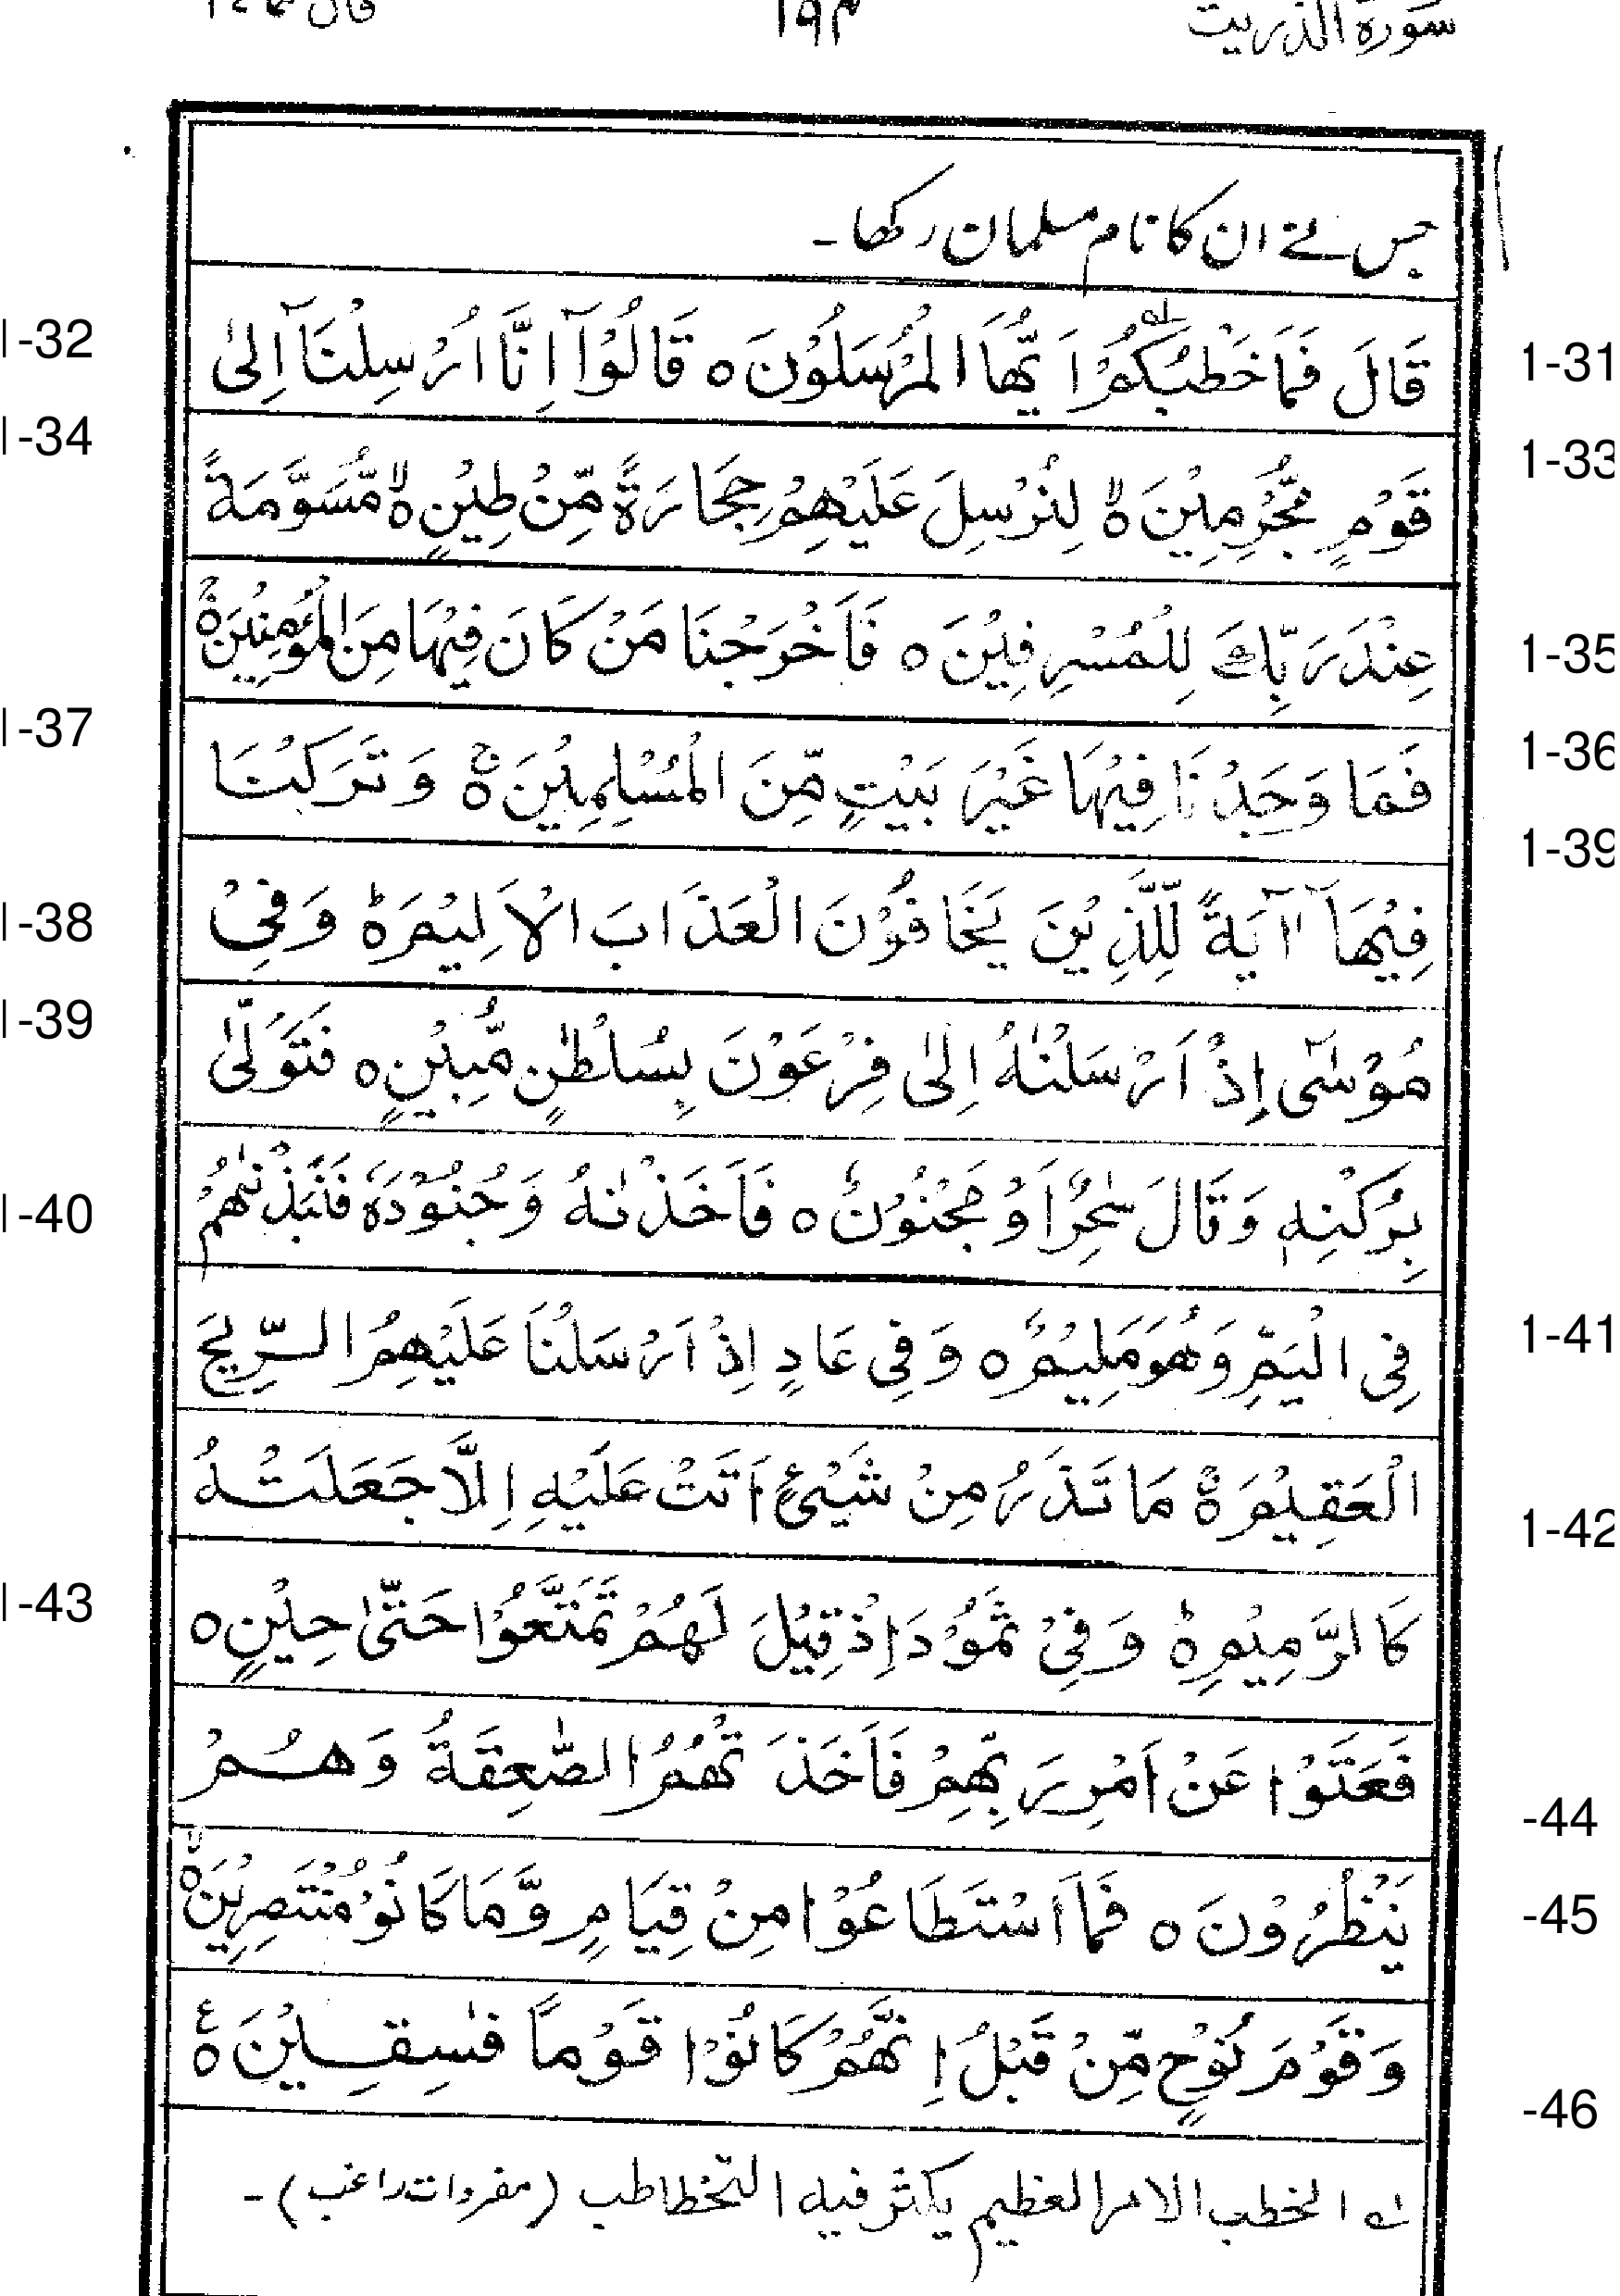 سورة الذريت ۱۹۴
جس نے ان کا نام مسلمان رکھا۔
1-32 قَالَ فَمَا خَطْبُكُمْ لہ اَيُّهَا الْمُرْسَلُوْنَ ہ قَالُوْٓا اِنَّآ اُرْسِلْنَآ اِلٰى 1-31
1-34 قَوْمٍ مُّجْرِمِيْنَ ہلا لِنُرْسِلَ عَلَيْهِمْ حِجَارَةً مِّنْ طِيْنٍ ہلا مُّسَوَّمَةً 1-33
عِنْدَ رَبِّكَ لِلْمُسْرِفِيْنَ ہ فَاَخْرَجْنَا مَنْ كَانَ فِيْهَا مِنَ الْمُؤْمِنِيْنَ ہ 1-35
1-37 فَمَا وَجَدْنَا فِيْهَا غَيْرَ بَيْتٍ مِّنَ الْمُسْلِمِيْنَ ہج وَتَرَكْنَا 1-36
1-39
1-38 فِيْهَآ اٰيَةً لِّلَّذِيْنَ يَخَافُوْنَ الْعَذَابَ الْاَلِيْمَ ہط وَفِيْ
1-39 مُوْسٰٓى اِذْ اَرْسَلْنٰهُ اِلٰى فِرْعَوْنَ بِسُلْطٰنٍ مُّبِيْنٍ ہ فَتَوَلّٰى
1-40 بِرُكْنِهٖ وَقَالَ سٰحِرٌ اَوْ مَجْنُوْنٌ ہ فَاَخَذْنٰهُ وَجُنُوْدَهٗ فَنَبَذْنٰهُمْ
فِى الْيَمِّ وَهُوَ مُلِيْمٌ ہ وَفِى عَادٍ اِذْ اَرْسَلْنَا عَلَيْهِمُ الرِّيْحَ 1-41
الْعَقِيْمَ ہج مَا تَذَرُ مِنْ شَيْئٍ اَتَتْ عَلَيْهِ اِلَّا جَعَلَتْهُ 1-42
1-43 كَالرَّمِيْمِ ہط وَفِيْ ثَمُوْدَ اِذْ قِيْلَ لَهُمْ تَمَتَّعُوْا حَتّٰى حِيْنٍ ہ
فَعَتَوْا عَنْ اَمْرِ رَبِّهِمْ فَاَخَذَتْهُمُ الصّٰعِقَةُ وَهُمْ -44
يَنْظُرُوْنَ ہ فَمَا اسْتَطَاعُوْا مِنْ قِيَامٍ وَّمَا كَانُوْ مُنْتَصِرِيْنَ ہلا -45
وَقَوْمَ نُوْحٍ مِّنْ قَبْلُ اِنَّهُمْ كَانُوْا قَوْمًا فٰسِقِيْنَ ہع -46
لہ الخطب الامر العظيم يكثر فيه التخاطب (مفردات راغب)۔